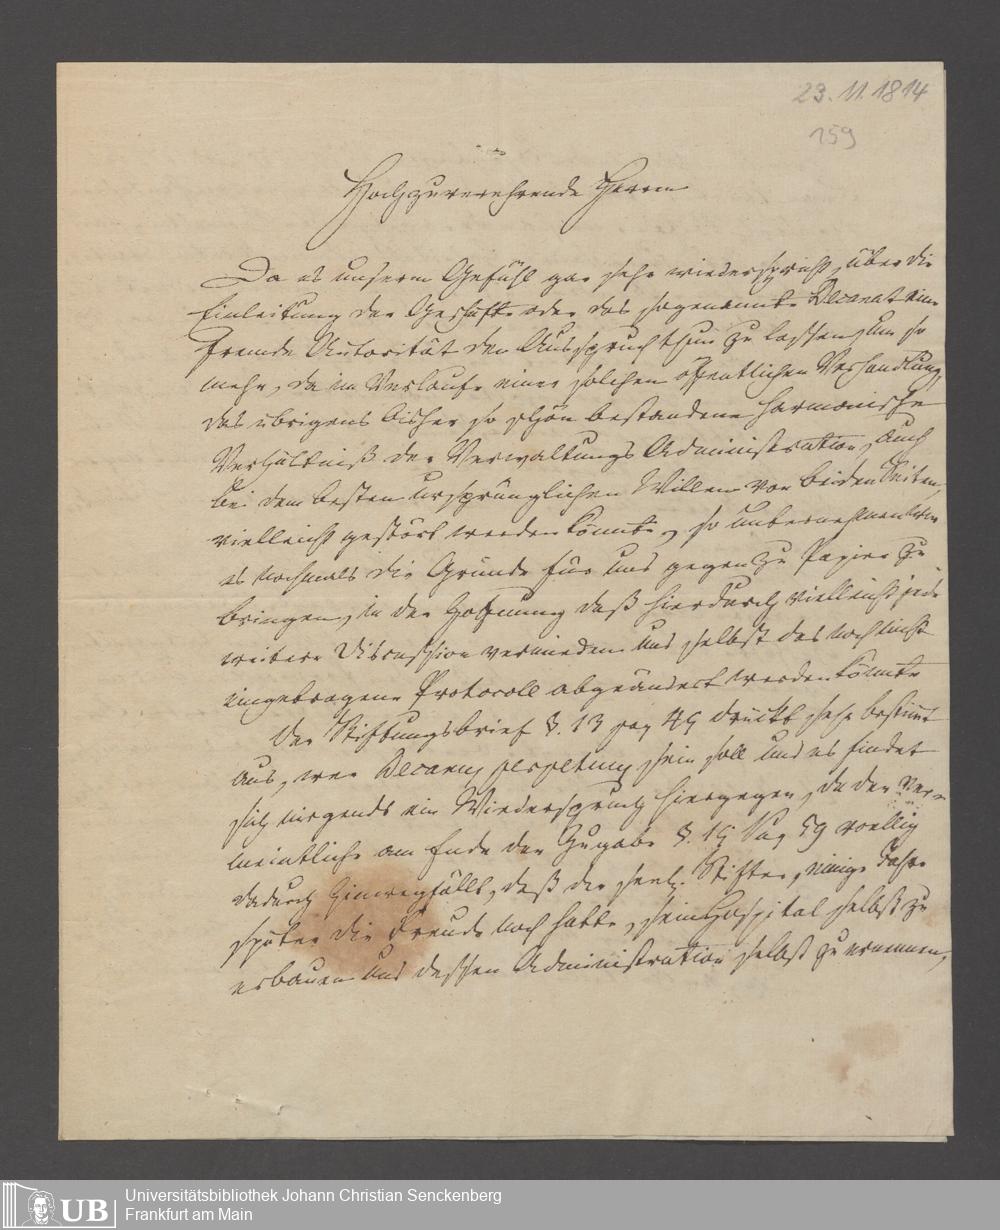 23. 11. 1814
159
Hochzuverehrende Herrn
Da es unserm Gefühl gar sehr wiederspricht, über die
Einleitung der Geschäfte oder das sogenannte Decanat eine
fremde Autorität den Ausspruch thun zu lassen, um so
mehr, da im Verlaufe einer solchen öffentlichen Verhandlung,
das übrigens bisher so schön bestandene harmonische
Verhältniß der Verwaltungs Administration, auch
bei dem besten ursprünglichen Willen von beiden Seiten,
vielleicht gestört werden könnte, so unternehmen wir
es nochmals die Gründe für und gegen zu Papier zu
bringen, in der Hoffnung daß hierdurch vielleicht jede
weitere Discussion vermieden und selbst das noch nicht
eingetragene Protocoll abgeändert werden könnte
Der Stiftungsbrief §. 13 pag 49 drückt sehr bestimt
aus, wer Decanus perpetuus sein soll und es findet
sich nirgends ein Wiederspruch hiergegen, da der ver-
meintliche am Ende der Zugabe §. 19 Pag 59 voellig
dadurch hinwegfällt, daß der seel. Stifter, einige Jahre
später die Freude noch hatte, sein Hospital selbst zu
erbauen und dessen Administration selbst zu ernennen,
Universitätsbibliothek Johann Christian Senckenberg
Frankfurt am Main
UB